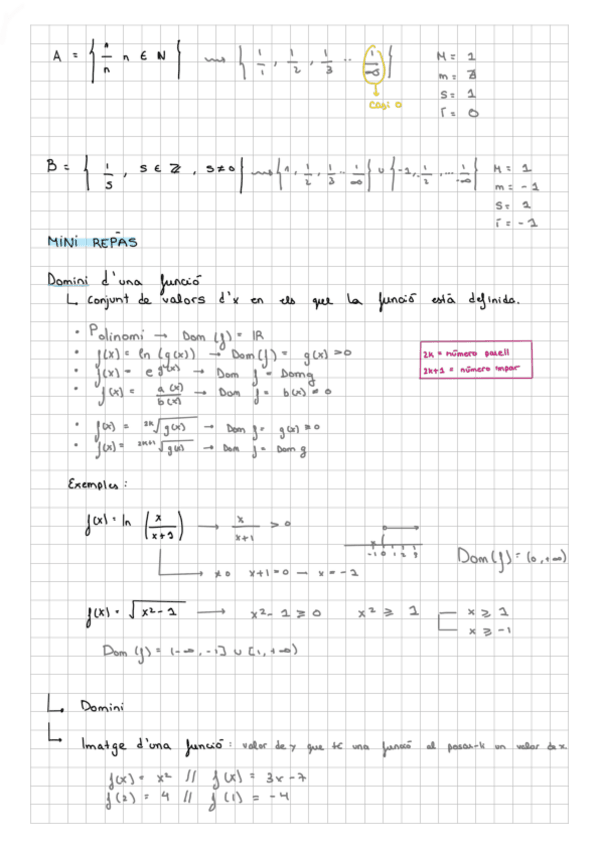 A = { 1/n n ∈ N } ⟿ { 1/1, 1/2, 1/3 ... 1/∞ }
casi 0
M = 1
m = ∄
S = 1
I = 0
B = { 1/S, S ∈ Z, S ≠ 0 } ⟿ { 1, 1/2, 1/3 ... 1/∞ } ∪ { -1, 1/2, ... 1/-∞ }
M = 1
m = -1
S = 1
i = -1
MINI REPAS
Domini d'una funció
↳ conjunt de valors d'x en els que la funció està definida.
• Polinomi → Dom (f) = IR
• f(x) = ln (g(x)) → Dom(f) = g(x) > 0
• f(x) = e g(x) → Dom f = Dom g
• f(x) = a(x)/b(x) → Dom f = b(x) ≠ 0
2K = número parell
2K+1 = número impar
• f(x) = 2K√g(x) → Dom f = g(x) ≥ 0
• f(x) = 2K+1√g(x) → Dom f = Dom g
Exemples:
f(x) = ln (x/x+1) → x/x+1 > 0
-1 0 1 2 3
Dom(f) = (0, +∞)
x+1 = 0 — x = -1
f(x) = √x²-1 → x² - 1 ≥ 0 x² ≥ 1
x ≥ 1
x ≥ -1
Dom (f) = (-∞, -1] ∪ [1, +∞)
↳ Domini
↳ Imatge d'una funció: valor de y que té una funció al posar-li un valor de x
f(x) = x² // f(x) = 3x - 7
f(2) = 4 // f(1) = -4